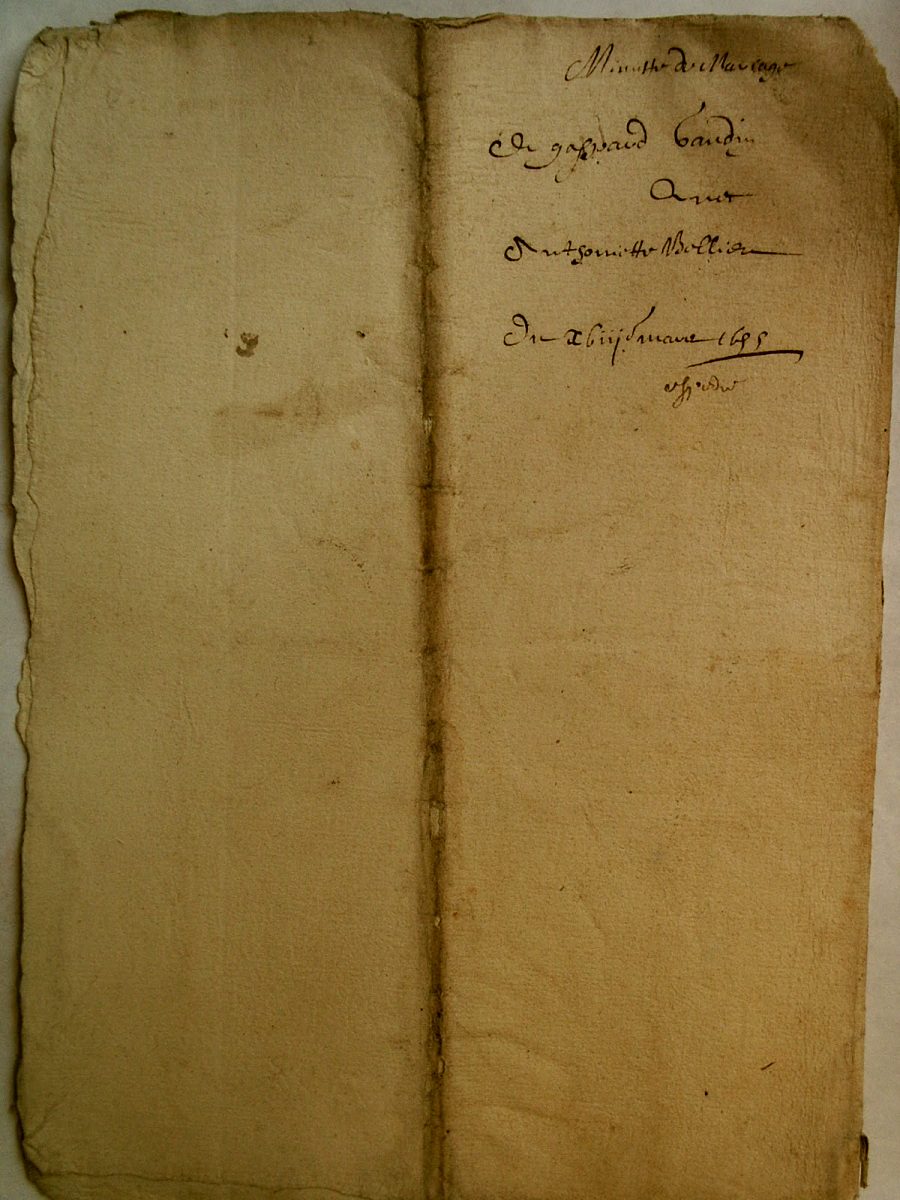 Minutte de Mariage
De gaspard baudin
Avec
Anthoinette Bellier
Du xbiije mars 1655
expedie